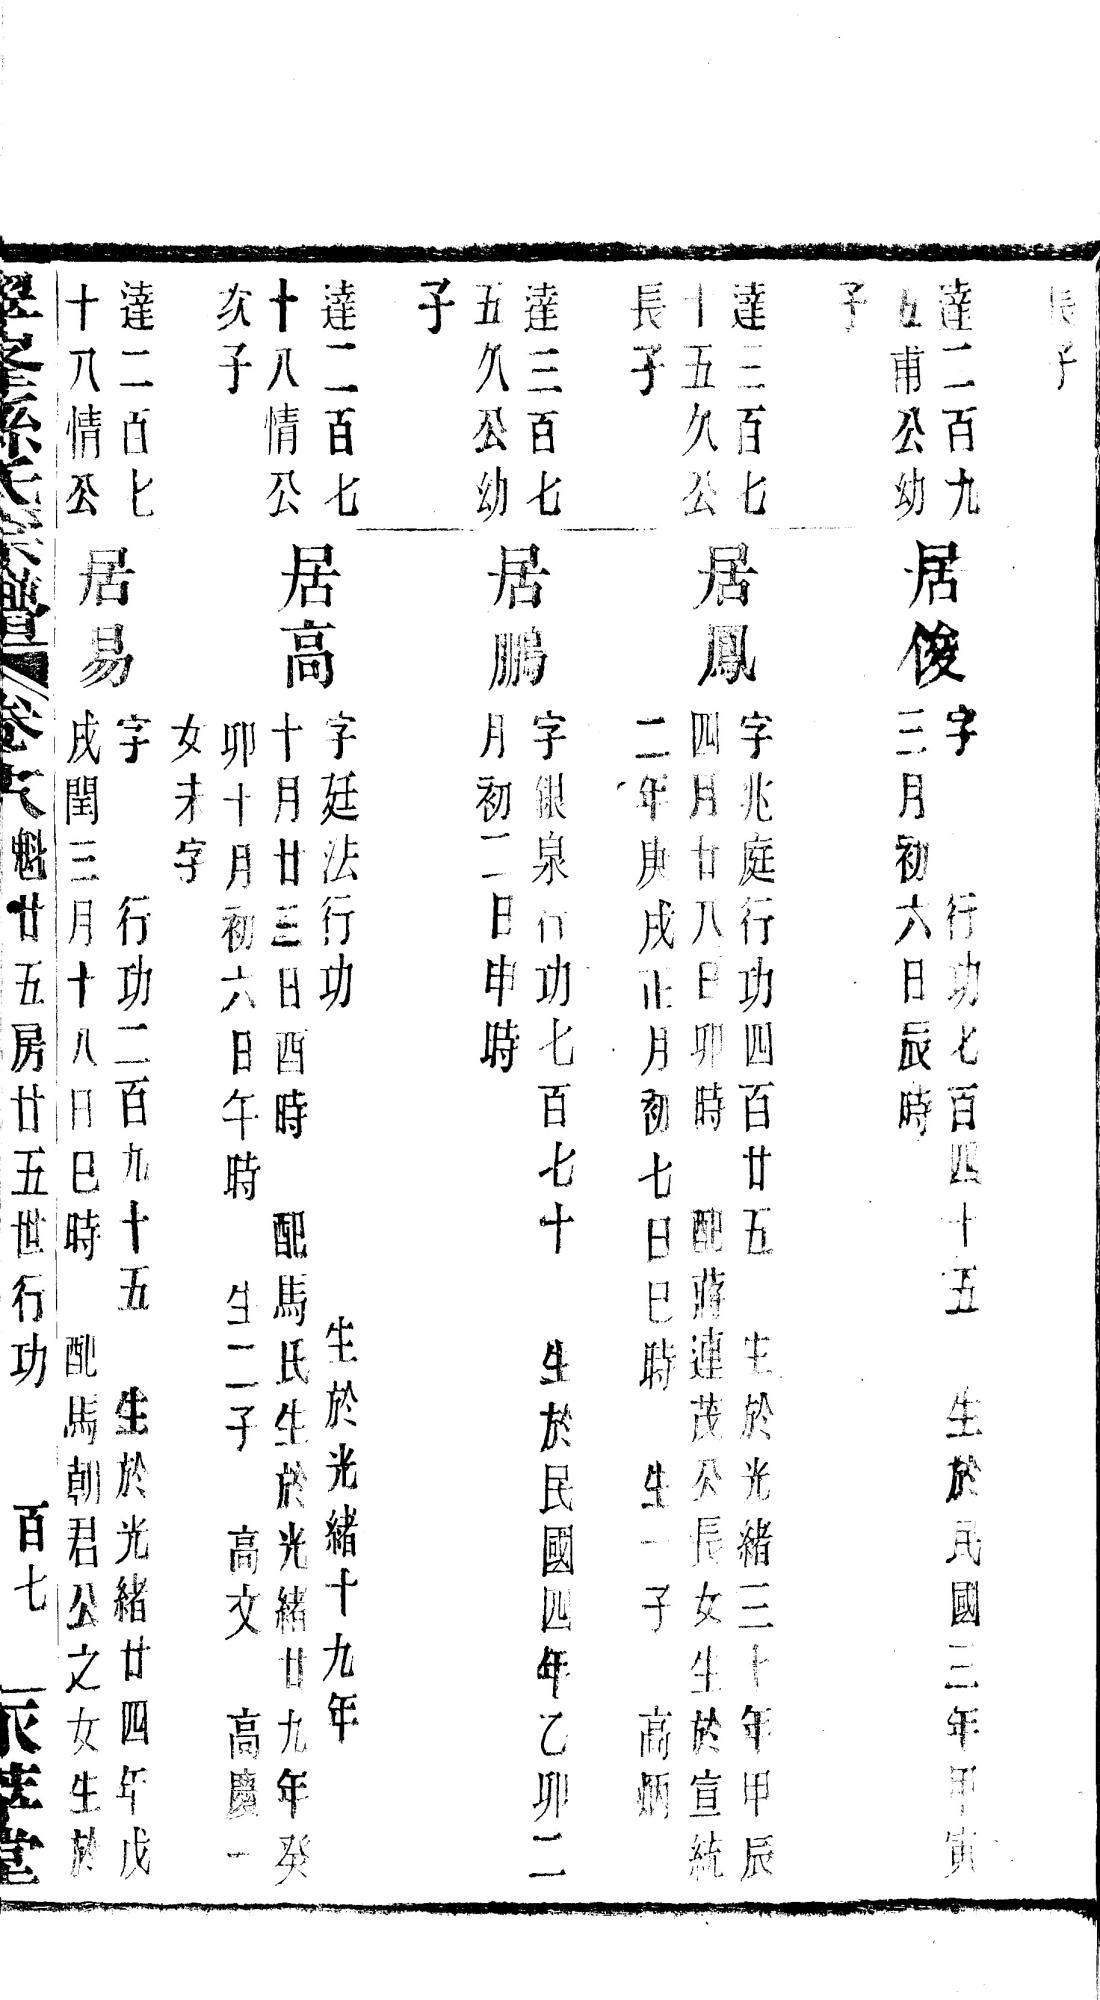 長子
達二百九
五甫公幼
子
居俊
字　行功七百四十五　生於民國三年甲寅
三月初六日辰時
達三百七
十五久公
長子
居鳳
字兆庭行功四百廿五　生於光緒三十年甲辰
四月廿八日卯時　配蔣連茂公長女生於宣統
二年庚戌正月初七日巳時　生一子　高炳
達三百七
五久公幼
子
居鵬
字銀泉行功七百七十　生於民國四年乙卯二
月初二日申時
達二百七
十八情公
次子
居高
字廷法行功　生於光緒十九年
十月廿三日酉時　配馬氏生於光緒廿九年癸
卯十月初六日午時　生二子　高文　高慶　一
女未字
達二百七
十八情公
居易
字　行功二百九十五　生於光緒廿四年戊
戌閏三月十八日巳時　配馬朝君公之女生於
孫氏宗譜　卷　魁廿五房廿五世行功　百七　堂